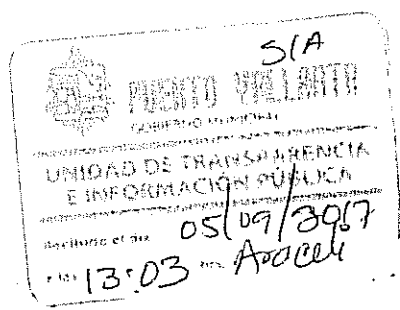 S/A
PUERTO VALLARTA
GOBIERNO MUNICIPAL
UNIDAD DE TRANSPARENCIA
E INFORMACIÓN PÚBLICA
Recibido el día 05/09/2017
a las 13:03 Hrs. Araceli